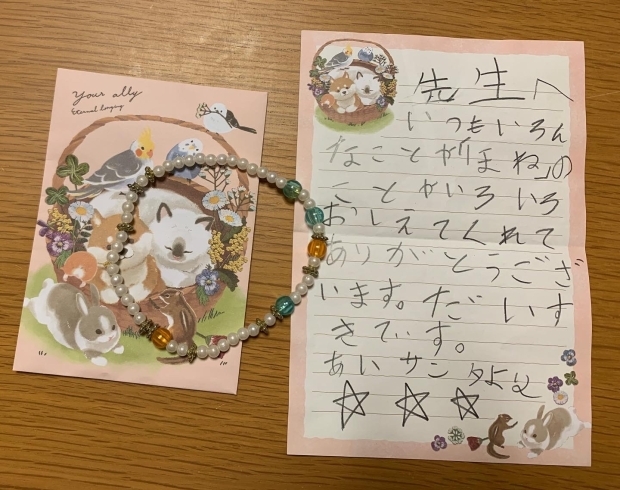 Your ally
Eternal longing
先生へ
いつもいろん
なことが「ほね」の
ことかいろいろ
おしえてくれて
ありがとうござ
います。だいす
きでぃす。